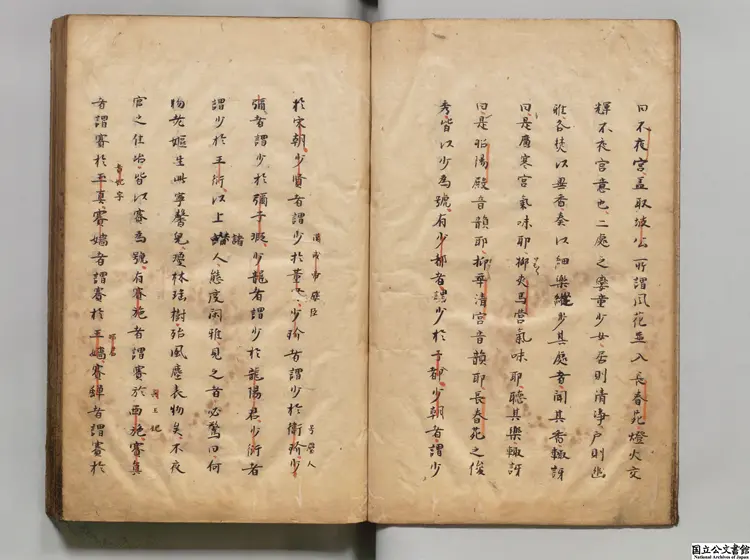 曰不夜宮蓋取坡公所謂風花並入長春苑燈火交
輝不夜宮意也二處之娈童少女居則清淨戶則幽
雅各焚以異香奏以細樂纔步其處者聞其香輙訝
曰是廣寒宮氣味耶抑矣馬宮氣味耶聽其樂輙訝
曰是昭陽殿音韻耶抑華清宮音韻耶長春苑之俊
秀皆以少為號有少都者謂少於子都少朝者謂少
於宋朝少賢者謂少於董賢少玠者謂少於衛玠少
彌者謂少於彌子瑕少龍者謂少於龍陽君少衍者
謂少於王衍以上諸人態度閑雅見之者必驚曰何
物老嫗生此寧馨兒瓊林瑤樹殆風塵表物矣不夜
宮之佳冶皆以賽為號有賽施者謂賽於西施賽真
者謂賽於玉真賽嬙者謂賽於王嬙賽蟬者謂賽於
国立公文書館
National Archives of Japan